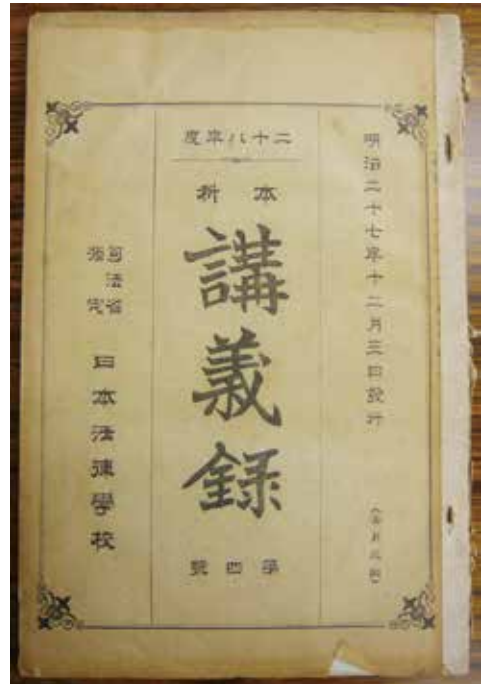 明治二十七年十二月三日發行
二十八年度
本科
講義録
第四號
司法省
指定
日本法律學校